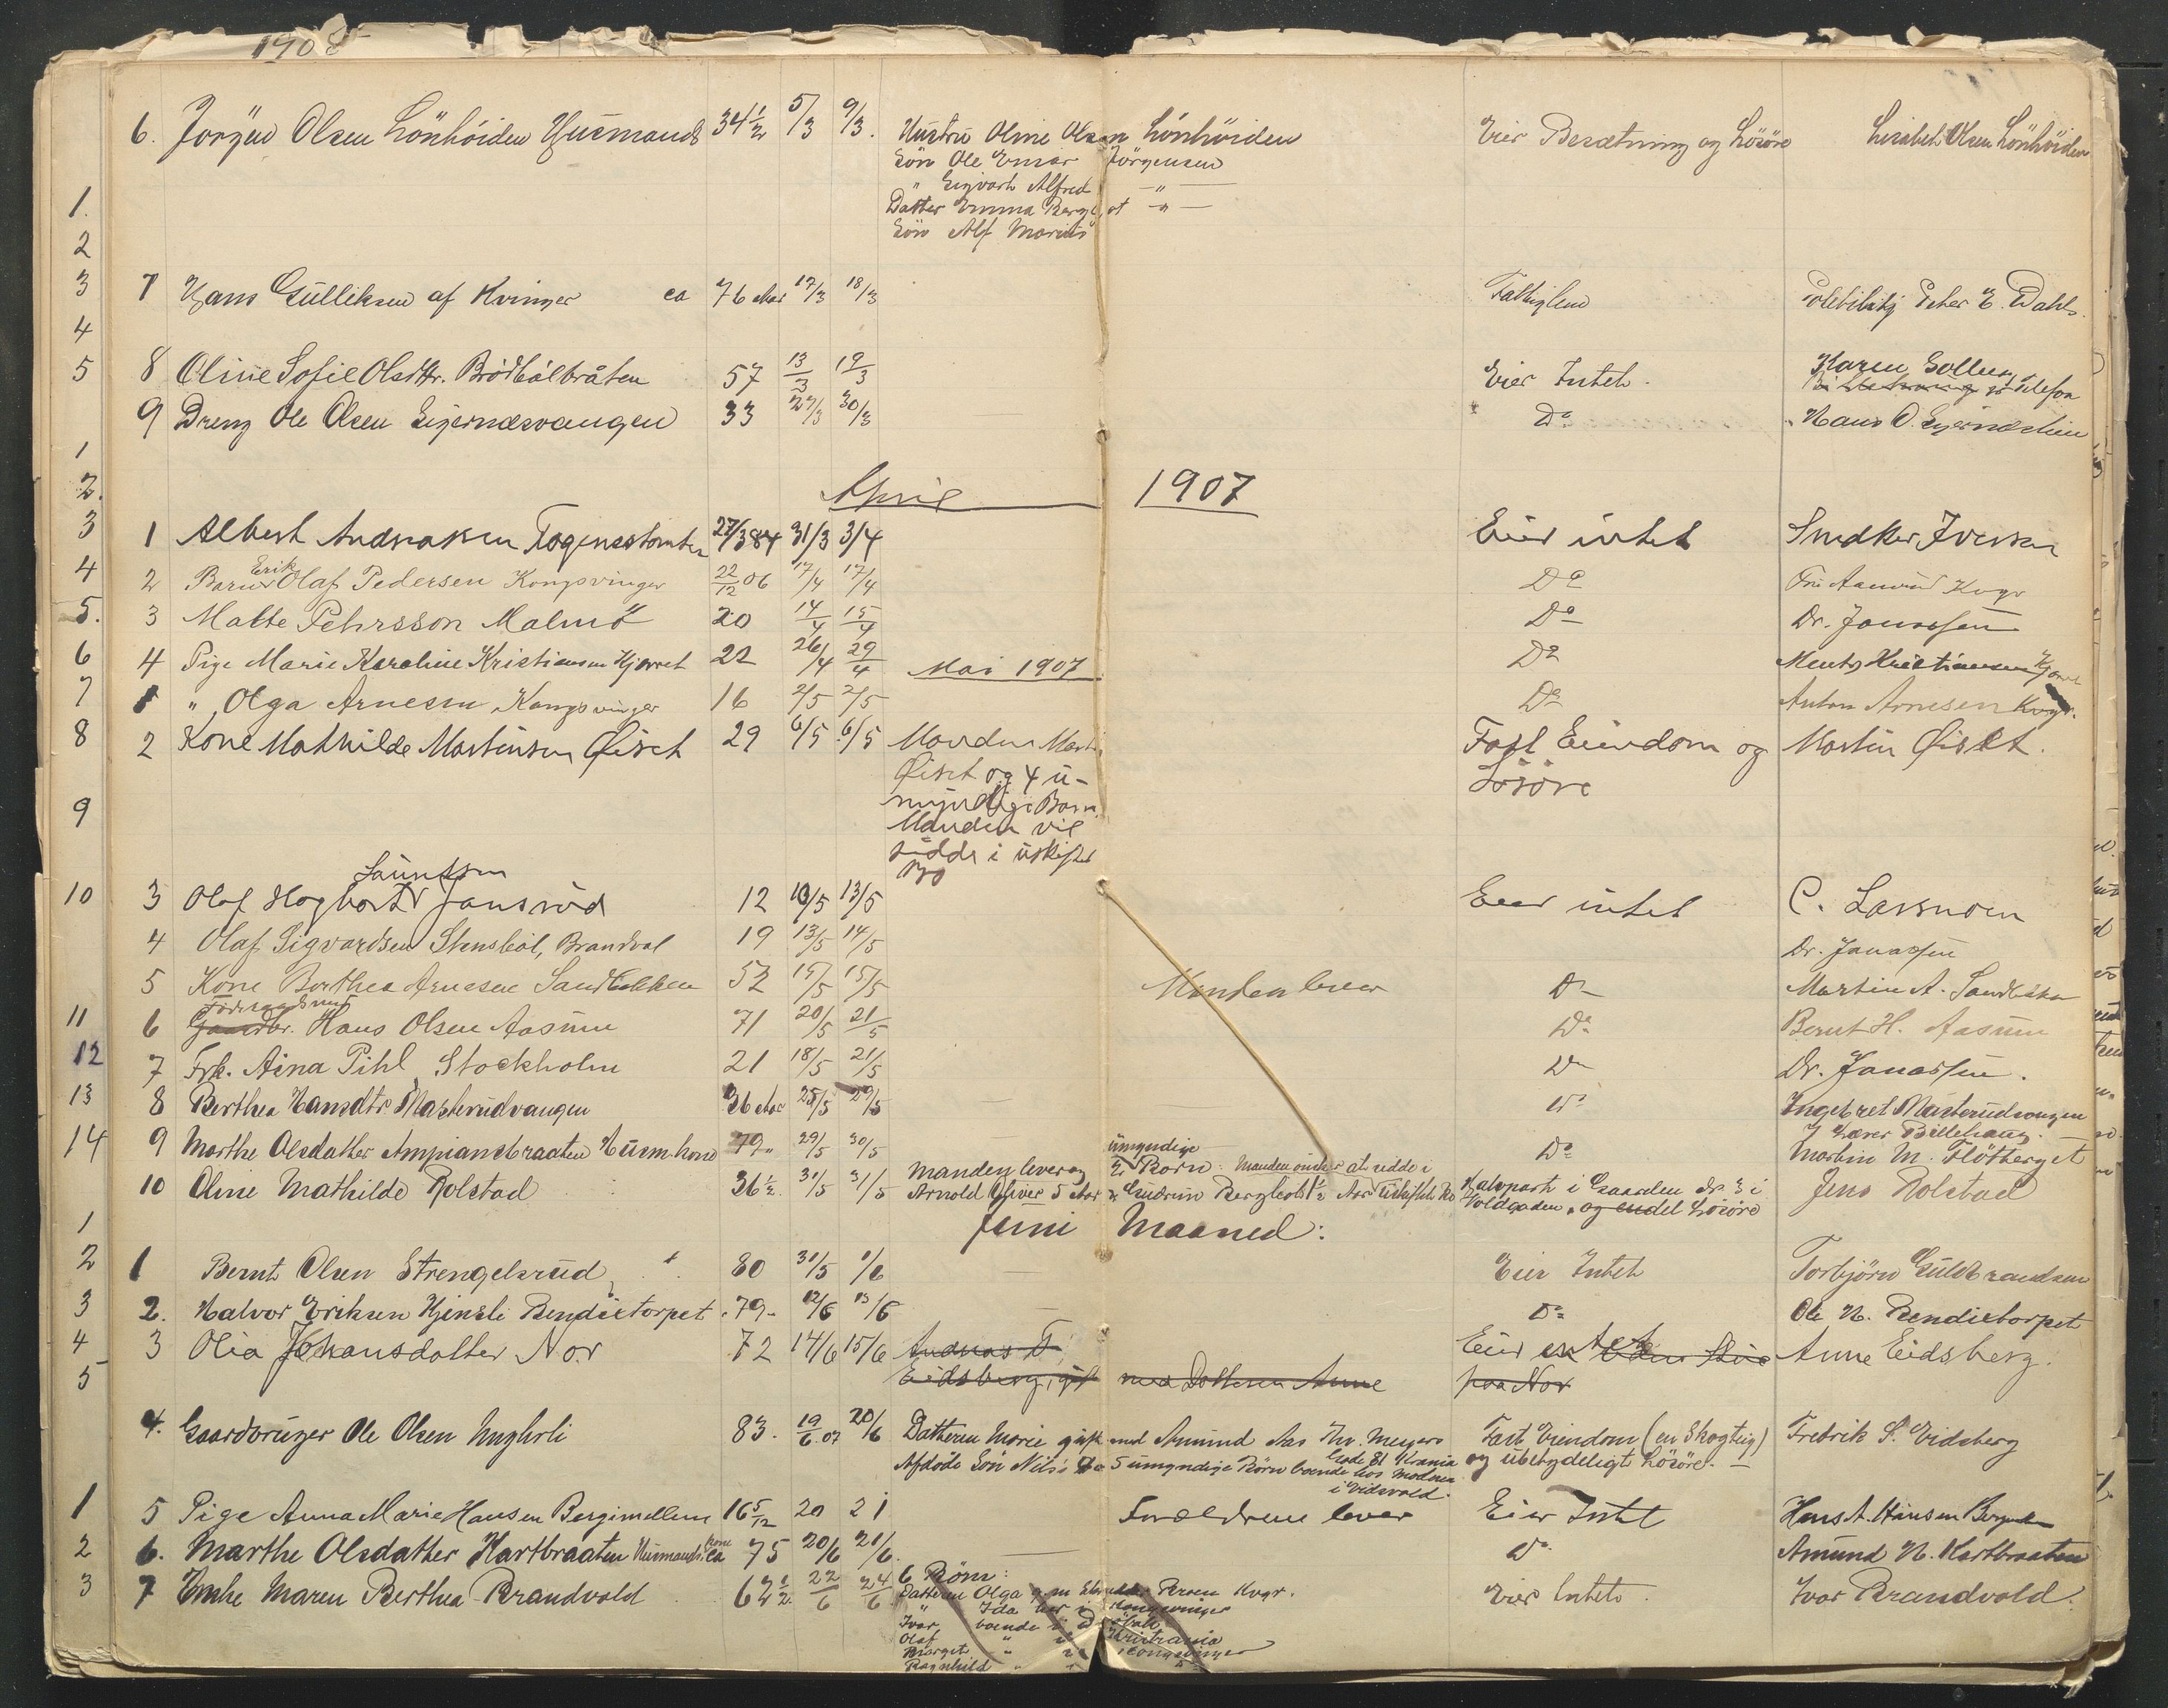 1908
6. Jorgen Olsen Lönhöiden Husmand 34½ 5/3 9/3. Hustru Oline Olsen Lönhöiden Eier Besætning og Lösöre Lisabeth Olsen Lönhöiden
Sön Ole Einar Jörgensen
" Sigvart Alfred — " —
1. Datter Emma Bergljot — " —
2 Sön Alf Marius
3 7 Hans Gulliksen af Kvinger ca 76 Aar 17/3 18/3 Fattiglem Peter E. Dahl
4
5 8 Oline Sofie Olsdtr. Brödbölbråten 57 13/3 19/3 Eier Intet. Karen Solberg
pr Telefon
9 Dreng Ole Olsen Sigernæsvangen 33 27/3 30/3 — Do Hans O. Sigernæslien
1
2. April 1907
3 1 Albert Andreassen Foginestomten 27/3 84 31/3 3/4 Eier intet Snedker Iversen
4 2 Barn Erik Olaf Pedersen Kongsvinger 22/12 06 17/4 17/4 Do Kvgr
5. 3 Matte Pehrsson Malmö 20 14/4 15/4 Do Dr. Jonassen
6 4 Pige Marie Karoline Kristiansen Hjerret 22 26/4 29/4 Mai 1907 Do Mentz Kristiansen
7 1 " Olga Arnesen Kongsvinger 16 2/5 2/5 Do Anton Arnesen Kvgr.
8 2 Kone Mathilde Martinsen Öiset 29 6/5 6/5 Manden Martin Fast Eiendom og Martin Öiset.
Öiset og 4 u- Lösöre
9 myndige Barn.
Manden vil
sidde i uskiftet
Bo
Lauritsen
10 3 Olaf Hagbart Jansrud 12 10/5 13/5 Eier intet C. Larsmoen
4 Olaf Sigvardsen Stensböl, Brandval 19 13/5 14/5 Dr. Jonassen
5 Kone Berthea Arnesen Sandbakken 52 15/5 15/5 Manden lever Do Martin A. Sandbakken
Föderaadsmd
11 6 Gaardbr. Hans Olsen Aasum 71 20/5 21/5 Do Bernt H. Aasum
12 7 Frk. Aina Pihl, Stockholm 21 18/5 21/5 Do Dr. Jonassen.
13 8 Berthea Hansdtr Masterudvangen 36 Aar 25/5 29/5 — Do Ingebret Masterudvangen
14 9 Marthe Olsdatter Ampiansbraaten Husm. kone 79. 29/5 30/5 — Do Martin M. Flötberget
10 Oline Mathilde Rolstad 36½ 31/5 31/5 Manden lever og 2 umyndige Börn: Manden önsker at sidde i
Arnold Oliver 5 Aar & Gudrun Bergljot ½ Aar uskiftet Bo Halvpart i Gaarden No 3 i Jens Rolstad
Voldgaden, og endel Lösöre
1 Juni Maaned:
2 1 Bernt Olsen Strengelsrud 80 31/5 1/6 — Eier Intet Torbjörn Guldbrandsen
3 2. Halvor Eriksen Hjensli Bendixtorpet. 79. 12/6 13/6 — Do Ole H. Bendixtorpet
4 3 Olia Johansdatter Nor 72 14/6 15/6 Andreas T. Eier intet Anne Eidsberg.
5 Eidsberg, gift med Datteren Anne paa Nor
4. Gaardbruger Ole Olsen Unghrli 83. 19/6 07 20/6 Datteren Marie gift med Amund Aas Thv. Meyers Fast Eiendom (en Skogteig) Fredrik S. Eidsberg
Gade 81 Krania og ubetydeligt Lösöre. —
Afdöde Sön Nils's 5 umyndige Börn boende hos Moderen
i Eidsvold.
1 5 Pige Anna Marie Hansen Bergimellem 16 5/12 20 21 Forældrene lever Eier Intet Hans A. Hansen
2 6. Marthe Olsdatter Kartbraaten Husmandskone ca 75 20/6 21/6. — Do Amund H. Kartbraaten
3 7 Enke Maren Berthea Brandvold 62½ 22/6 24/6 6 Börn: Eier Intet. Ivar Brandvold.
Datteren Olga g. m. Persen Kvgr.
" Ida her i Kongsvinger
Ivar boende i
Olaf " " Kristiania
Marget " " Kongsvinger
Ragnhild " "